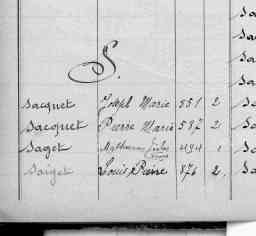 Sa
Sa
Sa
Sa
S.
Sacquet Joseph Marie 551 2 Sa
Sacquet Pierre Marie 587 2 Sa
Saget Mathurin 494 1 Sa
Saiget Louis Pierre 876 2 Sa